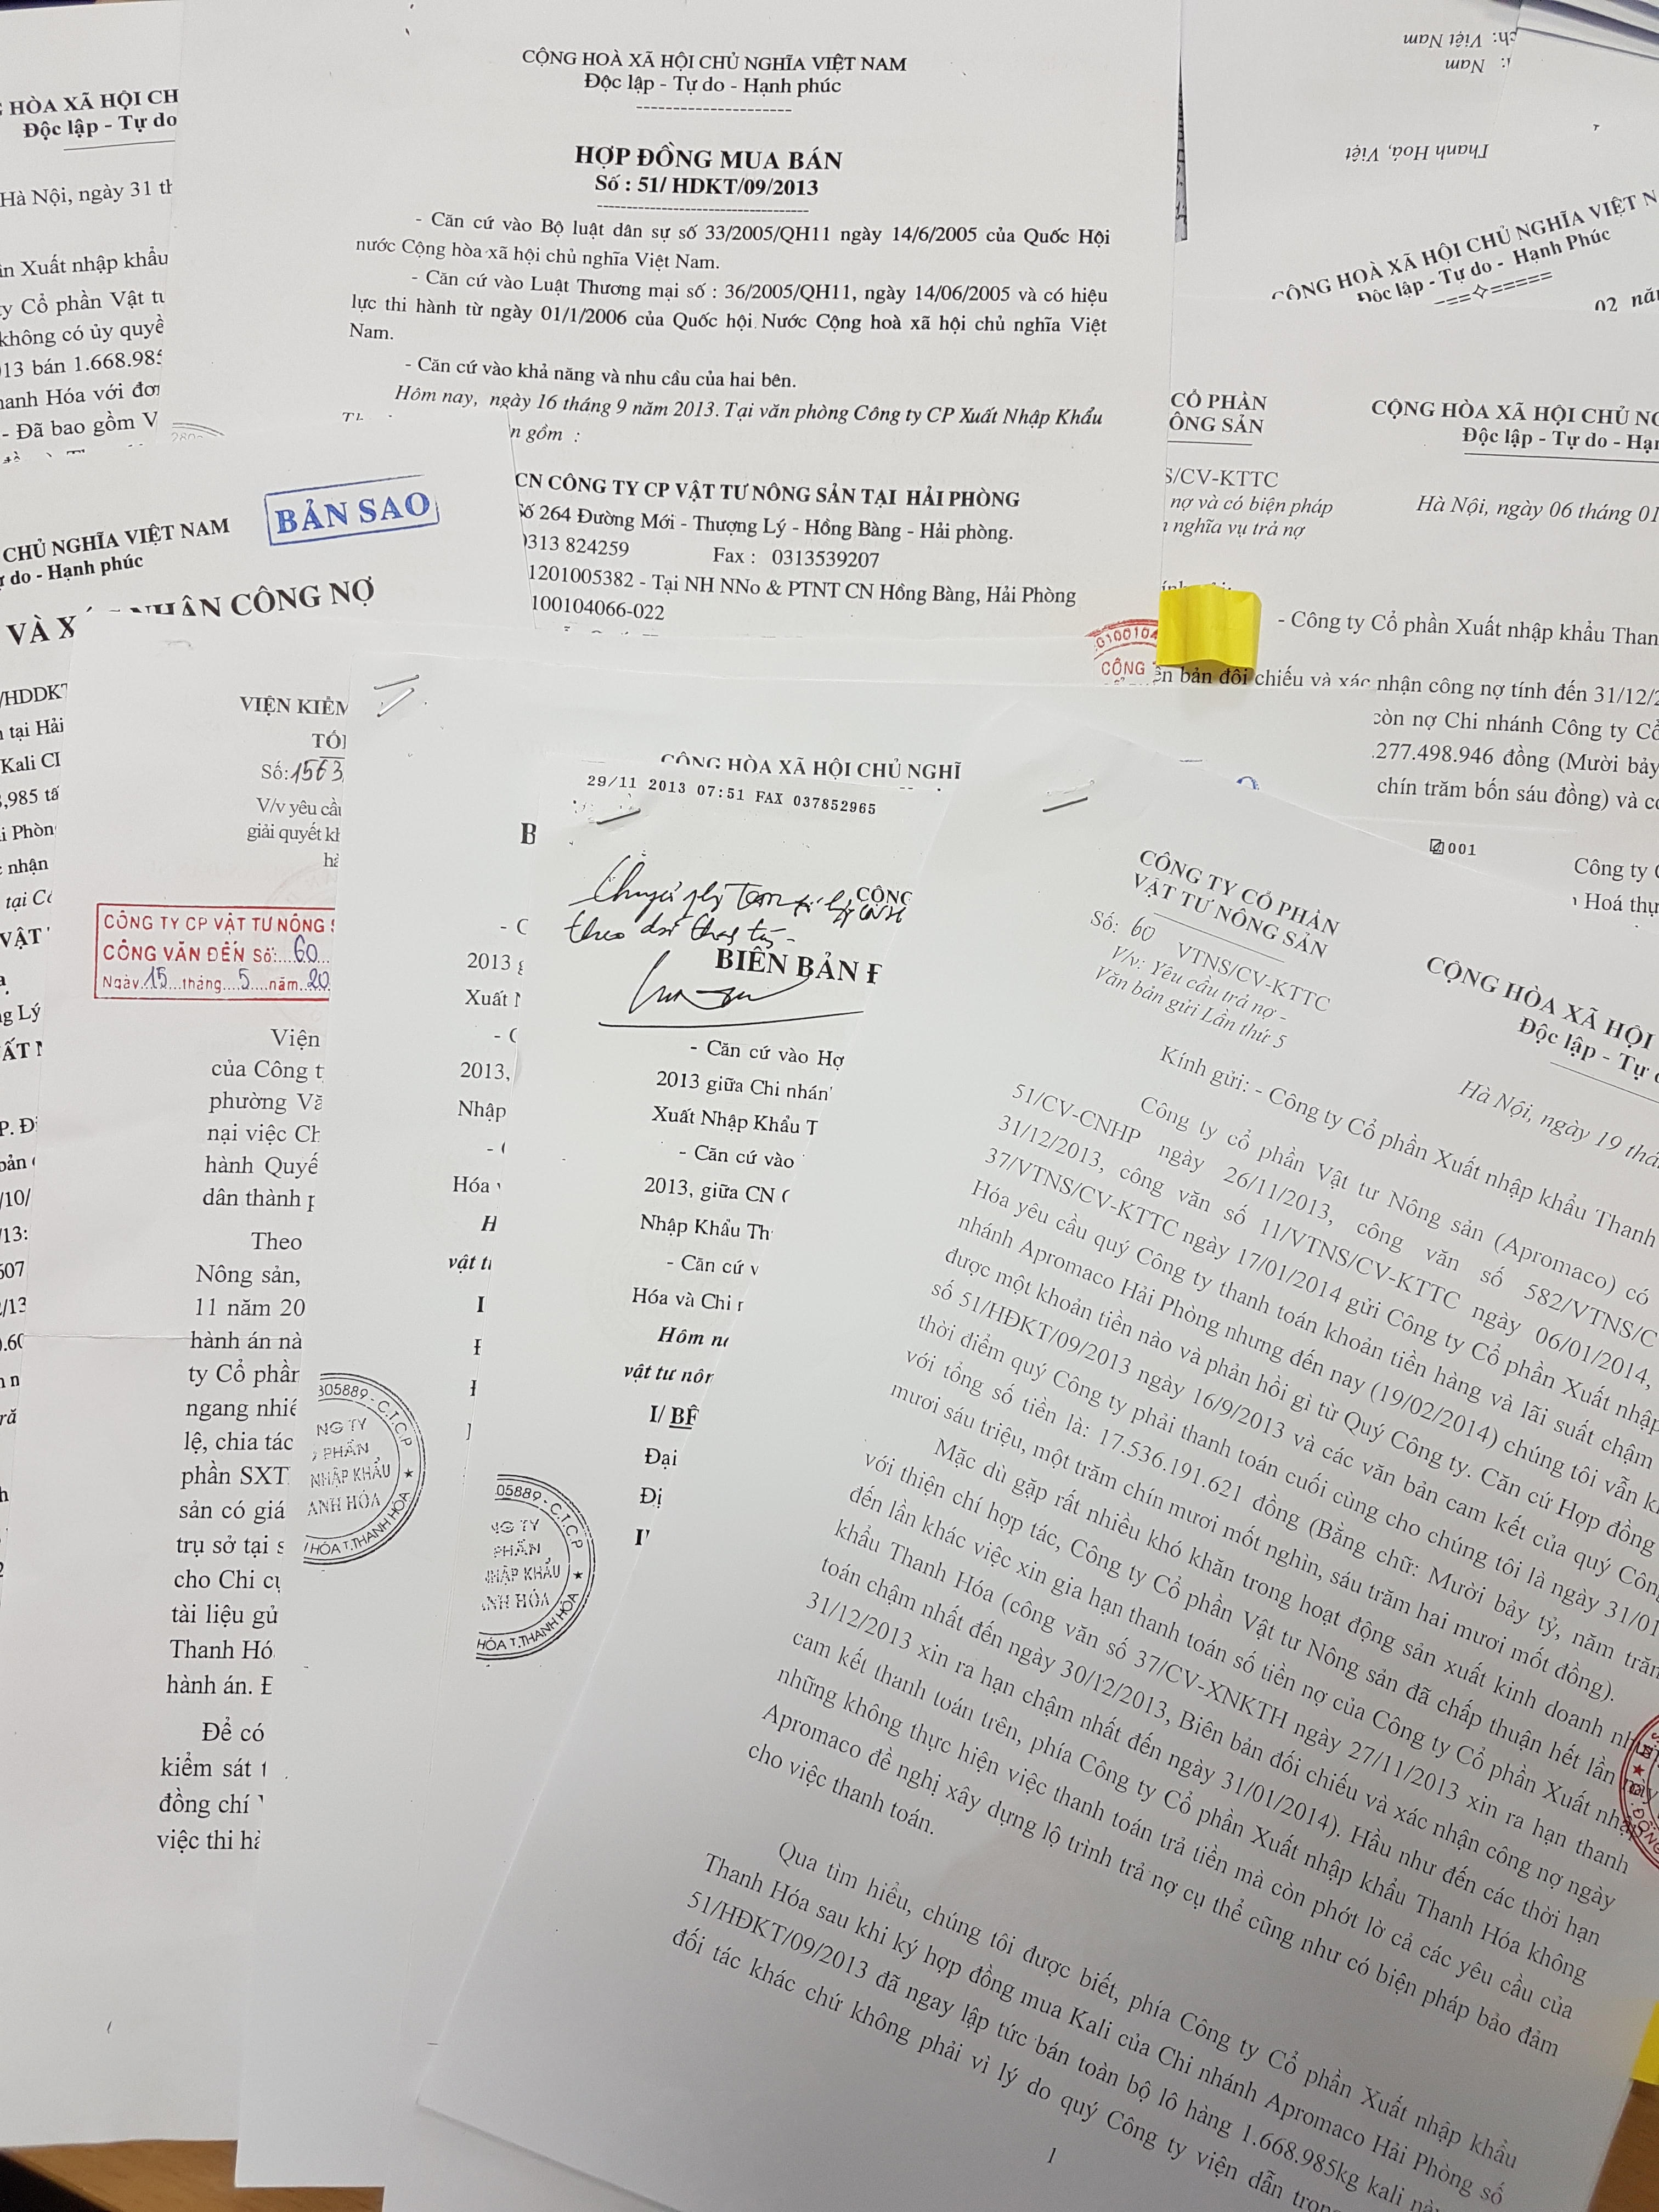 HÒA XÃ HỘI CH
Độc lập - Tự do
Hà Nội, ngày 31 th
Xuất nhập khẩu
ty Cổ phần Vật tư
không có ủy quyề
13 bán 1.668.985
anh Hóa với đơn
- Đã bao gồm V
CỘNG HOÀ XÃ HỘI CHỦ NGHĨA VIỆT NAM
Độc lập - Tự do - Hạnh phúc
HỢP ĐỒNG MUA BÁN
Số : 51/ HDKT/09/2013
- Căn cứ vào Bộ luật dân sự số 33/2005/QH11 ngày 14/6/2005 của Quốc Hội
nước Cộng hòa xã hội chủ nghĩa Việt Nam.
- Căn cứ vào Luật Thương mại số : 36/2005/QH11, ngày 14/06/2005 và có hiệu
lực thi hành từ ngày 01/1/2006 của Quốc hội Nước Cộng hoà xã hội chủ nghĩa Việt
Nam.
- Căn cứ vào khả năng và nhu cầu của hai bên.
Hôm nay, ngày 16 tháng 9 năm 2013. Tại văn phòng Công ty CP Xuất Nhập Khẩu
n gồm :
CN CÔNG TY CP VẬT TƯ NÔNG SẢN TẠI HẢI PHÒNG
Số 264 Đường Mới - Thượng Lý - Hồng Bàng - Hải phòng.
0313 824259 Fax : 0313539207
1201005382 - Tại NH NNo & PTNT CN Hồng Bàng, Hải Phòng
100104066-022
ch: Việt Nam
Nam
Thanh Hoá, Việt
CỘNG HOÀ XÃ HỘI CHỦ NGHĨA VIỆT N
Độc lập - Tự do - Hạnh Phúc
===✧=====
02 nă
CỔ PHẦN
ÔNG SẢN
S/CV-KTTC
nợ và có biện pháp
nghĩa vụ trả nợ
CỘNG HÒA XÃ HỘI CHỦ NG
Độc lập - Tự do - Hạn
Hà Nội, ngày 06 tháng 01
- Công ty Cổ phần Xuất nhập khẩu Than
ên bản đối chiếu và xác nhận công nợ tính đến 31/12/2
còn nợ Chi nhánh Công ty Cổ
.277.498.946 đồng (Mười bảy
chín trăm bốn sáu đồng) và cò
001
Công ty C
Hoá thự
CHỦ NGHĨA VIỆT NAM
do - Hạnh phúc
BẢN SAO
VÀ XÁC NHẬN CÔNG NỢ
/HDDKT
tại Hải
Kali Cl
,985 tấ
i Phòn
nhận
tại Cô
VẬT
ng Lý
P. Đi
bản
/10/
/13:
607
/13
0.60
VIỆN KIỂM
TỐI
Số: 1563
V/v yêu cầu
giải quyết kh
CÔNG TY CP VẬT TƯ NÔNG S
CÔNG VĂN ĐẾN Số: 60
Ngày 15 tháng 5 năm 20
Viện
của Công t
phường Vă
nại việc Ch
hành Quyế
dân thành p
Theo
Nông sản,
11 năm 20
hành án nà
ty Cổ phần
ngang nhiê
lệ, chia tác
phần SXT
sản có giá
trụ sở tại s
cho Chi cụ
tài liệu gử
Thanh Hó
hành án. Đ
Để có
kiểm sát t
đồng chí V
việc thi hà
B
- C
2013 g
Xuất N
- C
2013,
Nhập
- C
Hóa v
H
vật t
I
305889 - C.T.C.P
NG TY
PHẦN
NHẬP KHẨU
ANH HÓA
HÓA T.THANH HÓA
CỘNG HÒA XÃ HỘI CHỦ NGHĨ
29/11 2013 07:51 FAX 037852965
CỘNG
theo dõi
BIÊN BẢN Đ
- Căn cứ vào Hợ
2013 giữa Chi nhán
Xuất Nhập Khẩu T
- Căn cứ vào
2013, giữa CN C
Nhập Khẩu Th
- Căn cứ v
Hóa và Chi n
Hôm na
vật tư nôn
I/ BÊ
Đại
Đị
05889 - C.T.C.P
NG TY
PHẦN
NHẬP KHẨU
ANH HÓA
HÓA T.THANH HÓA
CÔNG TY CỔ PHẦN
VẬT TƯ NÔNG SẢN
Số: 60 VTNS/CV-KTTC
V/v: Yêu cầu trả nợ -
Văn bản gửi Lần thứ 5
CỘNG HÒA XÃ HỘI
Độc lập - Tự d
Hà Nội, ngày 19 thá
Kính gửi: - Công ty Cổ phần Xuất nhập khẩu Thanh
Công ty cổ phần Vật tư Nông sản (Apromaco) có
51/CV-CNHP ngày 26/11/2013, công văn số 582/VTNS/C
31/12/2013, công văn số 11/VTNS/CV-KTTC ngày 06/01/2014,
37/VTNS/CV-KTTC ngày 17/01/2014 gửi Công ty Cổ phần Xuất nhập
Hóa yêu cầu quý Công ty thanh toán khoản tiền hàng và lãi suất chậm
nhánh Apromaco Hải Phòng nhưng đến nay (19/02/2014) chúng tôi vẫn kh
được một khoản tiền nào và phản hồi gì từ Quý Công ty. Căn cứ Hợp đồng
số 51/HĐKT/09/2013 ngày 16/9/2013 và các văn bản cam kết của quý Côn
thời điểm quý Công ty phải thanh toán cuối cùng cho chúng tôi là ngày 31/01
với tổng số tiền là: 17.536.191.621 đồng (Bằng chữ: Mười bảy tỷ, năm trăm
mươi sáu triệu, một trăm chín mươi mốt nghìn, sáu trăm hai mươi mốt đồng).
Mặc dù gặp rất nhiều khó khăn trong hoạt động sản xuất kinh doanh
với thiện chí hợp tác, Công ty Cổ phần Vật tư Nông sản đã chấp thuận hết lần này
đến lần khác việc xin gia hạn thanh toán số tiền nợ của Công ty Cổ phần Xuất nhập
khẩu Thanh Hóa (công văn số 37/CV-XNKTH ngày 27/11/2013 xin ra hạn thanh
toán chậm nhất đến ngày 30/12/2013, Biên bản đối chiếu và xác nhận công nợ ngày
31/12/2013 xin ra hạn chậm nhất đến ngày 31/01/2014). Hầu như đến các thời hạn
cam kết thanh toán trên, phía Công ty Cổ phần Xuất nhập khẩu Thanh Hóa không
những không thực hiện việc thanh toán trả tiền mà còn phớt lờ cả các yêu cầu của
Apromaco đề nghị xây dựng lộ trình trả nợ cụ thể cũng như có biện pháp bảo đảm
cho việc thanh toán.
Qua tìm hiểu, chúng tôi được biết, phía Công ty Cổ phần Xuất nhập khẩu
Thanh Hóa sau khi ký hợp đồng mua Kali của Chi nhánh Apromaco Hải Phòng số
51/HĐKT/09/2013 đã ngay lập tức bán toàn bộ lô hàng 1.668.985kg kali
đối tác khác chứ không phải vì lý do quý Công ty viện dẫn
1